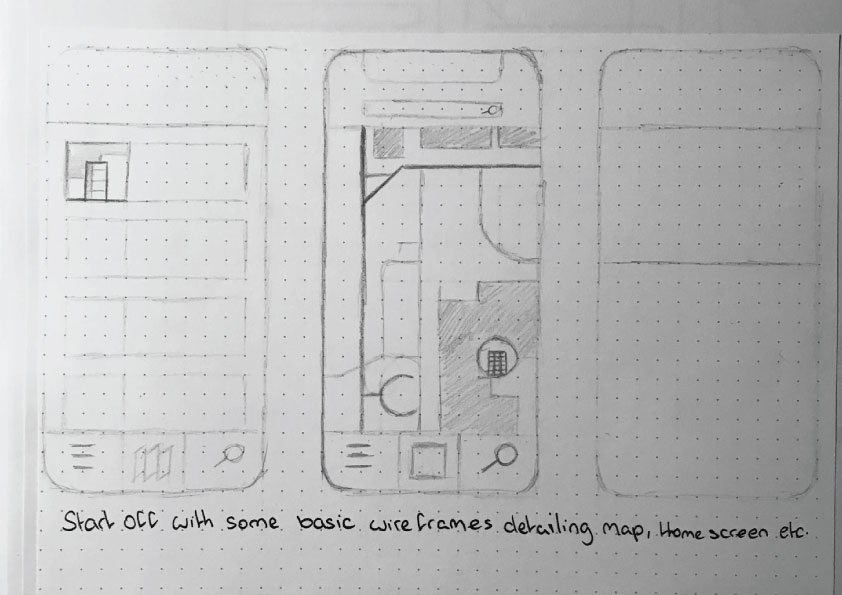 Start off with some basic wireframes detailing map, Home screen etc.